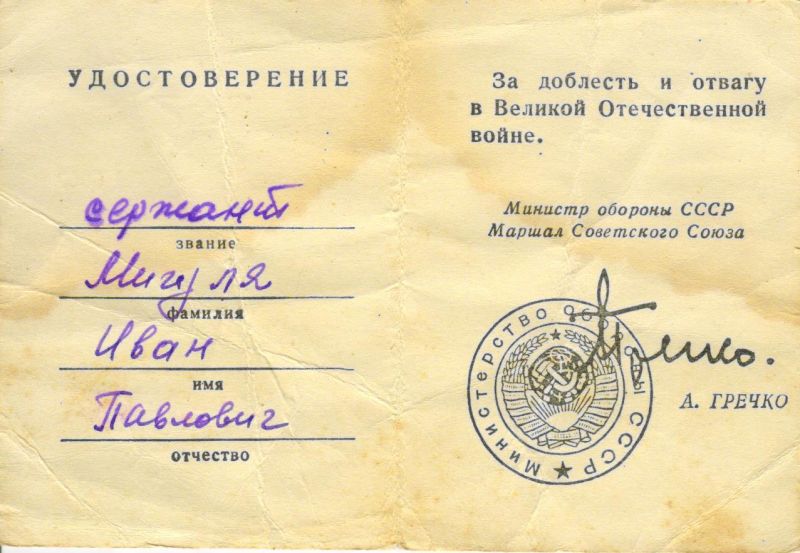 УДОСТОВЕРЕНИЕ
сержант
звание
Мигуля
фамилия
Иван
имя
Павлович
отчество
За доблесть и отвагу
в Великой Отечественной
войне.
Министр обороны СССР
Маршал Советского Союза
Министерство Обороны СССР
Гречко.
А. ГРЕЧКО